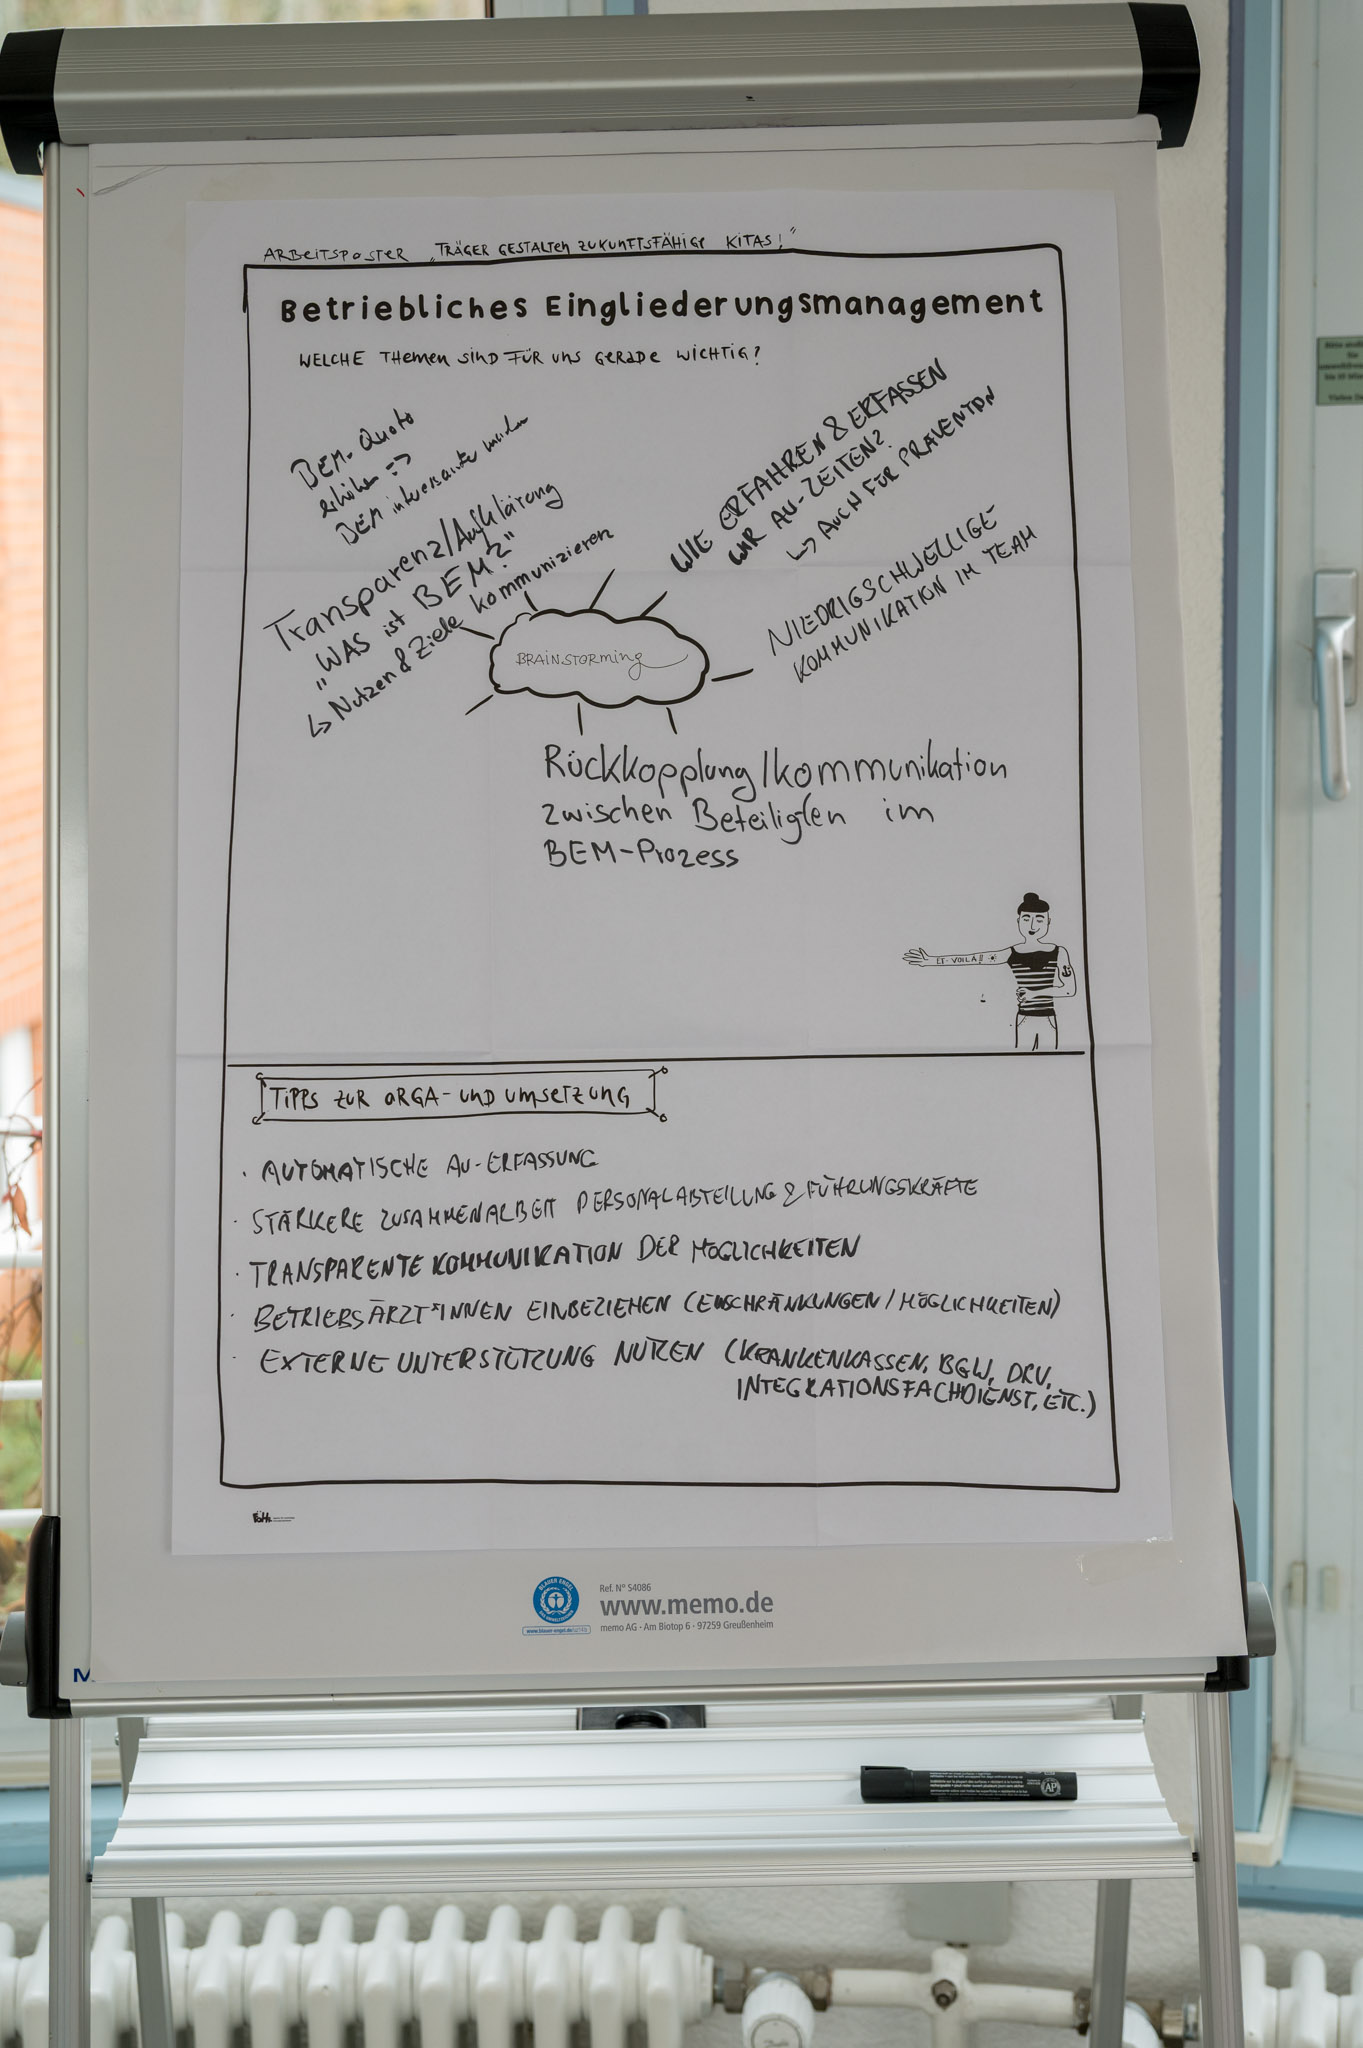 ARBEITSPOSTER „TRÄGER GESTALTEN ZUKUNFTSFÄHIGE KITAS!"
Betriebliches Eingliederungsmanagement
WELCHE THEMEN SIND FÜR UNS GERADE WICHTIG?
BEM-Quote
erhöhen =>
BEM interessanter machen
Transparenz/Aufklärung
„WAS ist BEM?"
↳ Nutzen & Ziele kommunizieren
WIE ERFAHREN & ERFASSEN
WIR AU-ZEITEN?
↳ AUCH FÜR PRÄVENTION
NIEDRIGSCHWELLIGE
KOMMUNIKATION IM TEAM
BRAINSTORMING
Rückkopplung/Kommunikation
zwischen Beteiligten im
BEM-Prozess
ET VOILA!!
TIPPS ZUR ORGA- UND UMSETZUNG
· AUTOMATISCHE AU-ERFASSUNG
· STÄRKERE ZUSAMMENARBEIT PERSONALABTEILUNG & FÜHRUNGSKRÄFTE
· TRANSPARENTE KOMMUNIKATION DER MÖGLICHKEITEN
· BETRIEBSÄRZT*INNEN EINBEZIEHEN (EINSCHRÄNKUNGEN/MÖGLICHKEITEN)
· EXTERNE UNTERSTÜTZUNG NUTZEN (KRANKENKASSEN, BGW, DRV,
INTEGRATIONSFACHDIENST, ETC.)
BLAUER ENGEL
Ref. N° S4086
www.memo.de
memo AG · Am Biotop 6 · 97259 Greußenheim
AP